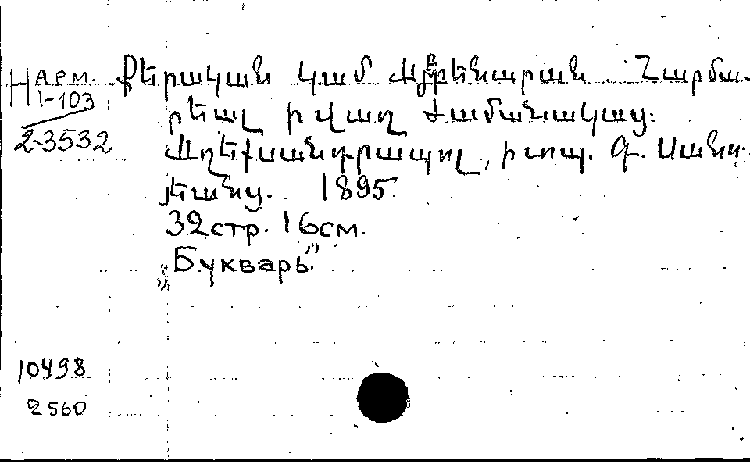 Арм.
Н I-103
2-3532
Քերական կամ Այբբենարան Յարմա-
րեալ ի վաղ ժամանակաց.
Աղեքսանդրապոլ, ի տպ. Գ. Սանո-
յեանց. 1895.
32стр. 16см.
„Букварь”
10498
2560